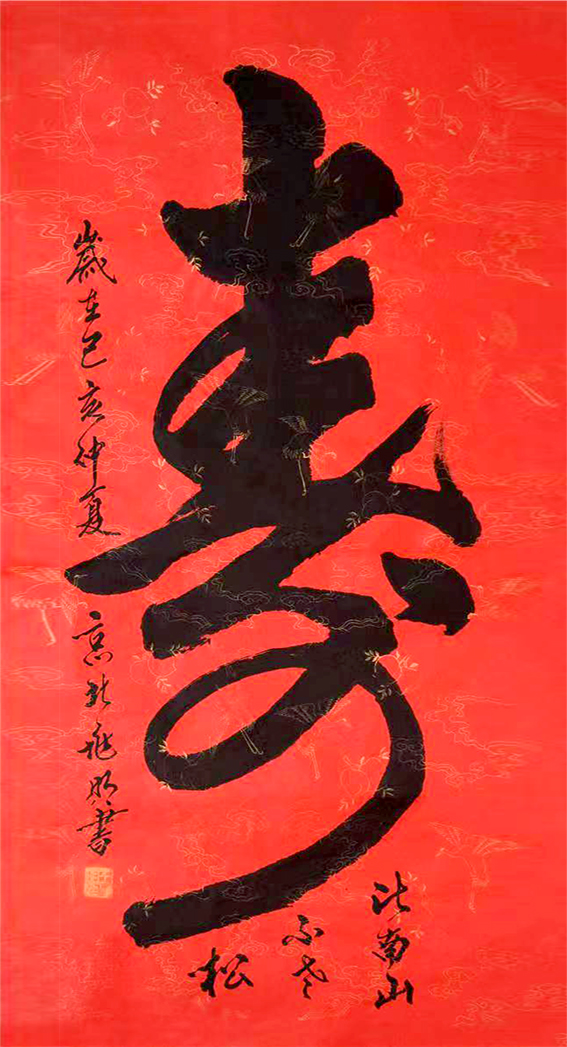 壽
比南山
不老
松
歲在己亥仲夏 京 書